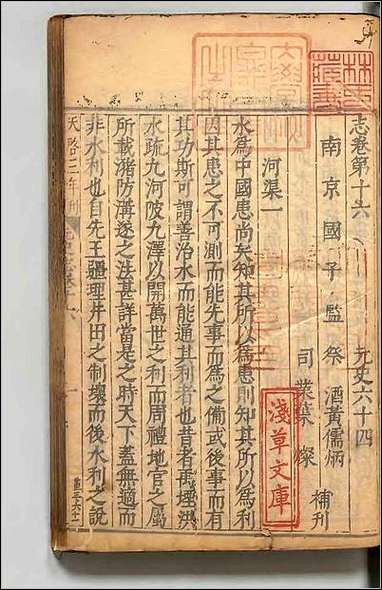 志卷第十六 元史六十四
南京國子監祭酒黃儒炳
司業葉燦 補刊
河渠一
水為中國患尚矣知其所以為患則知其所以為利
因其患之不可測而能先事而為之備或後事而有
其功斯可謂善治水而能通其利者也昔者禹堙洪
水疏九河陂九澤以開萬世之利而周禮地官之屬
所載瀦防溝遂之法甚詳當是之時天下蓋無適而
非水利也自先王疆理井田之制壞而後水利之說
天啓三年刊
淺草文庫
林氏藏書